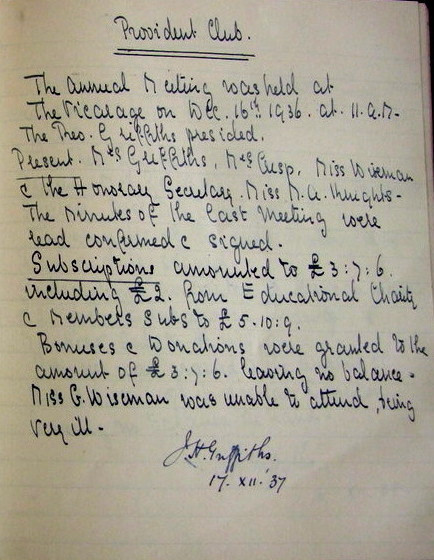 Provident Club.
The annual Meeting was held at
The Vicarage on Dec. 16th 1936. at. 11. a.m-
The Theo. Griffiths presided.
Present. Mrs Griffiths, Mrs Cusp, Miss Wiseman
c the Honorary Secretary. Miss M. A.
The Minutes of the Last Meeting were
read confirmed c signed.
Subscriptions amounted to £3:7:6.
including £2. from Educational Charity
c Members Subs to £5.10:9.
Bonuses c Donations were granted to the
amount of £3:7:6. leaving no balance-
Miss G. Wiseman was unable to attend, being
very ill-
J. H. Griffiths.
17. XII. '37